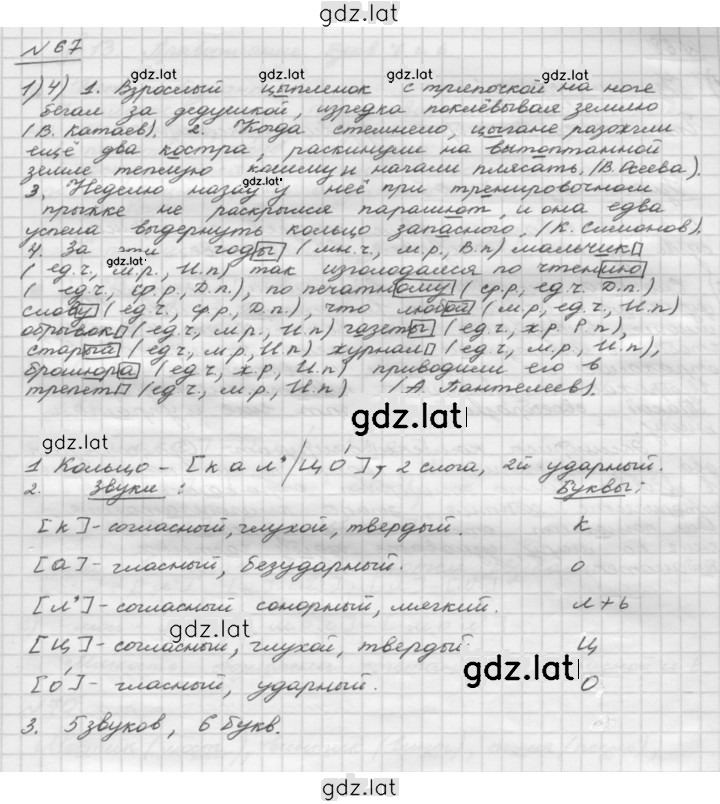 gdz.lat
№ 67
gdz.lat
1) 4) 1. Взрослый цыпленок с тряпочкой на ноге
бегал за дедушкой, изредка поклёвывая землю
gdz.lat gdz.lat
(В. Катаев). 2. Когда стемнело, цыгане разожгли
ещё два костра, раскинули на вытоптанной
земле тепелую кошму и начали плясать. (В. Осеева).
gdz.lat
3. Неделю назад у неё при тренировочном
прыжке не раскрылся парашют, и она едва
успела выдернуть кольцо запасного. (К. Симонов).
4. За эти годы (мн.ч., м.р., В.п) мальчик
gdz.lat
(ед.ч., м.р., И.п) так изголодался по чтению
(ед.ч., ср.р., Д.п.), по печатному (ср.р, ед.ч. Д.п.)
слову (ед.ч., ср.р, Д.п.), что любой (м.р, ед.ч., И.п)
обрывок (ед.ч., м.р., И.п) газеты (ед.ч., ж.р. Р.п),
старый (ед.ч., м.р, И.п) журнал (ед.ч., м.р, И.п),
брошюра (ед.ч., ж.р, И.п) приводили его в
трепет (ед.ч., м.р., И.п) (А. Пантелеев).
gdz.lat
gdz.lat
1 Кольцо – [к а л' / ц о́], 2 слога, 2й ударный.
2. Звуки: Буквы:
[к] – согласный, глухой, твердый. к
[а] – гласный, безударный. о
[л'] – согласный сонорный, мягкий. л + ь
gdz.lat
[ц] – согласный, глухой, твердый. ц
gdz.lat
[о́] – гласный, ударный. о
gdz.lat
3. 5 звуков, 6 букв.
gdz.lat